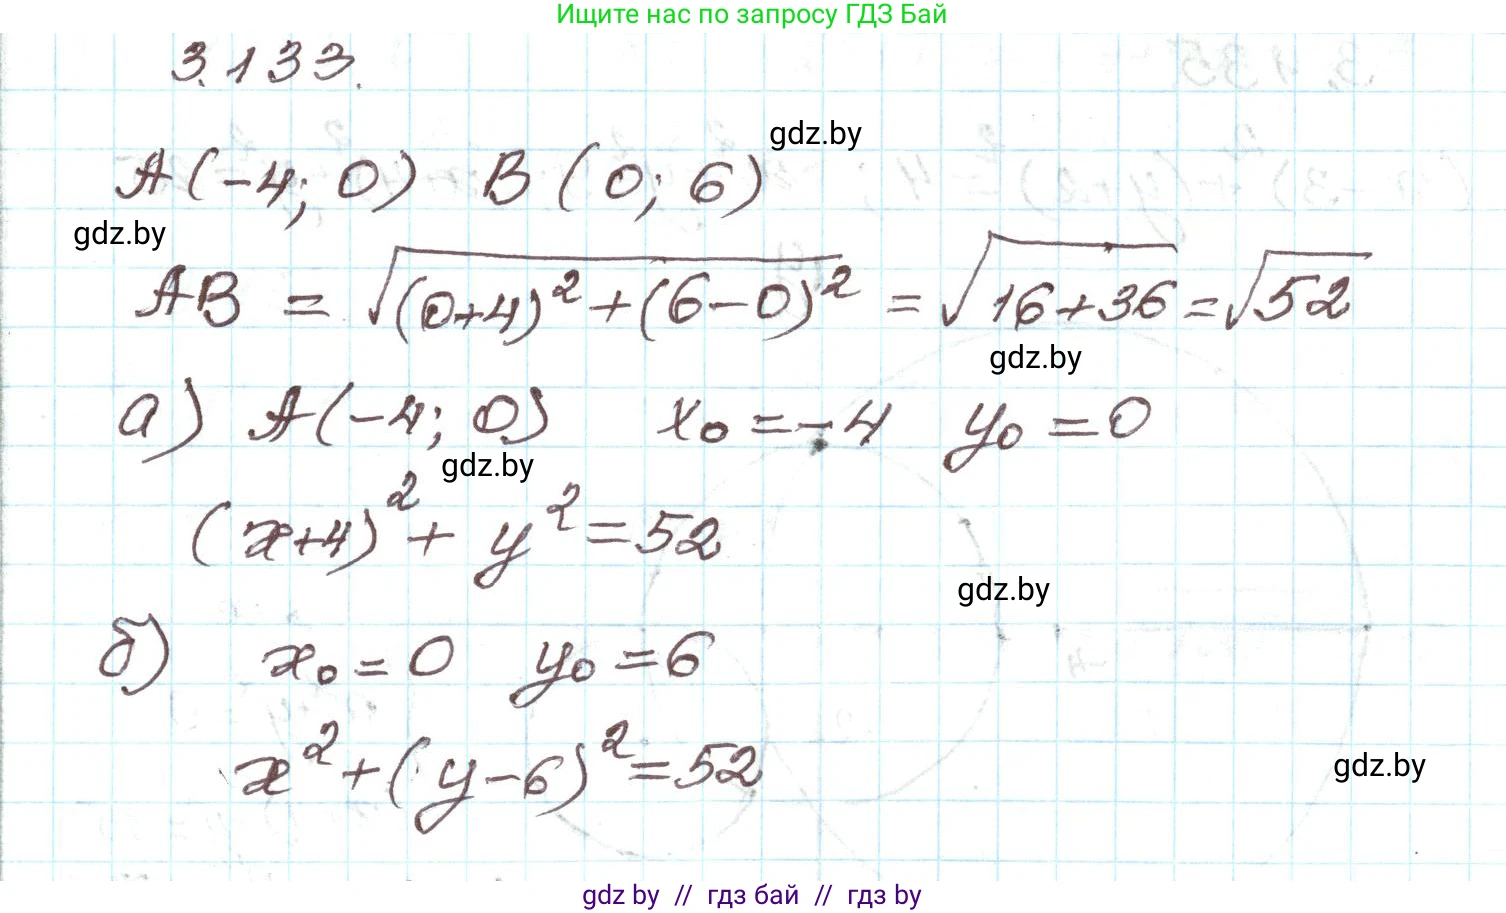 Ищите нас по запросу ГДЗ Бай
3.133.
A(-4; 0) B(0; 6)
gdz.by
gdz.by
AB = √((0+4)² + (6-0)²) = √(16+36) = √52
gdz.by
а) A(-4; 0) x₀ = -4 y₀ = 0
gdz.by
(x+4)² + y² = 52
gdz.by
б) x₀ = 0 y₀ = 6
x² + (y-6)² = 52
gdz.by
gdz by // гдз бай // гдз by